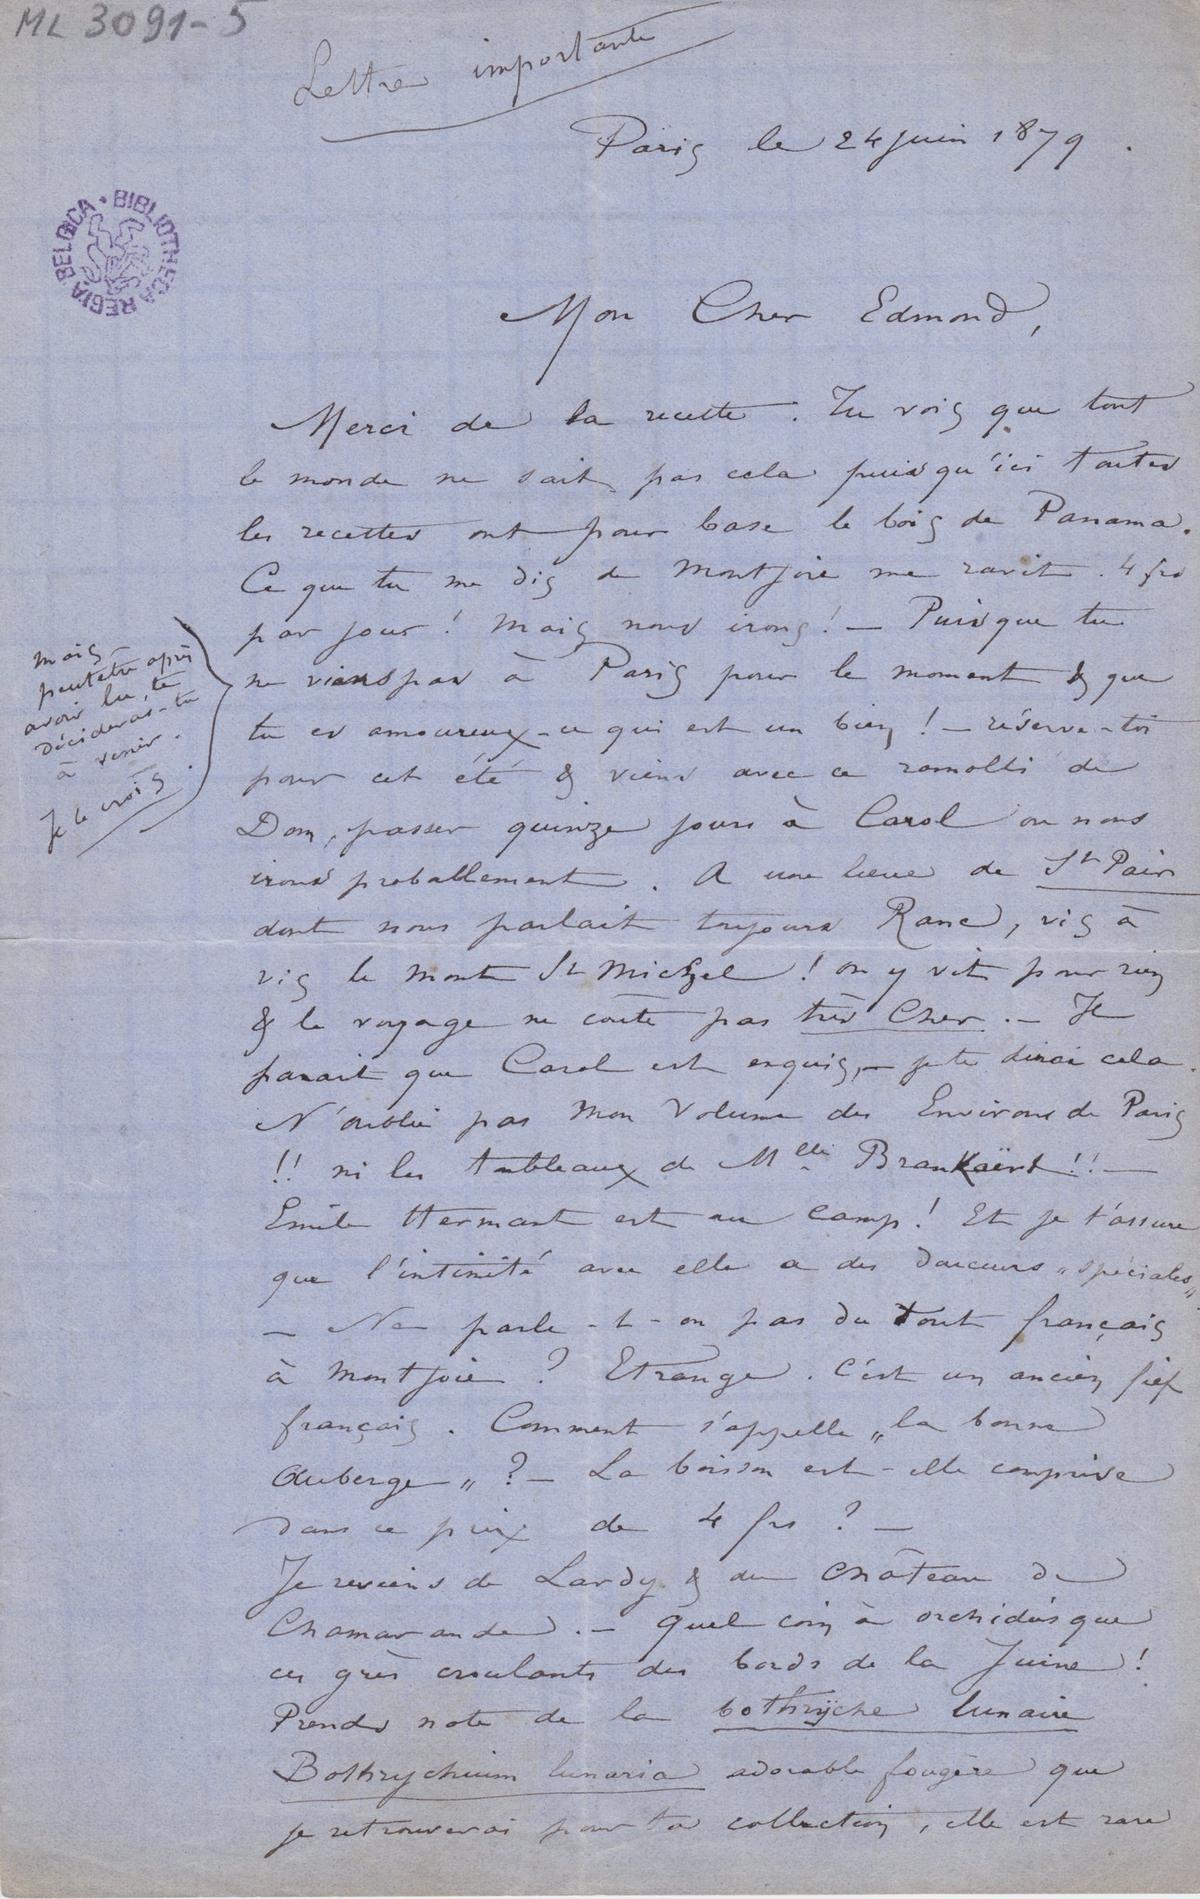 ML 3091-5
Lettre importante
Paris le 24 juin 1879.
BIBLIOTHECA REGIA BELGICA
Mon Cher Edmond,
Merci de la recette. Tu vois que tout
le monde ne sait pas cela puisqu'ici toutes
les recettes ont pour base le bois de Panama.
Ce que tu me dis de Montjoie me ravit. 4 frs
par jour! Mais nous irons! — Puisque tu
ne viens pas à Paris pour le moment & que
tu es amoureux - ce qui est un bien! — réserve-toi
pour cet été & viens avec ce ramolli de
Dom, passer quinze jours à Carol ou nous
irons proballement. A une lieue de St Pair
dont nous parlait toujours Ranc, vis à
vis le mont St Michel! on y vit pour rien
& le voyage ne coûte pas très Cher. — Il
parait que Carol est exquis, — je te dirai cela.
N'oublie pas mon Volume des Environs de Paris
!! ni les tableaux de Mlle Brankaërt!! —
Emile Hermant est au camp! Et je t'assure
que l'intimité avec elle a des douceurs „spéciales„
— Ne parle-t-on pas du tout français
à Montjoie? Etrange. C'est un ancien fief
français. Comment s'appelle „la bonne
Auberge„? — La boisson est-elle comprise
dans ce prix de 4 frs? —
Je reviens de Lardy & du Château de
Chamarande. — Quel coin à orchidés que
ces grès croulants des bords de la Juine!
Prends note de la bothryche lunaire
Bothrychium lunaria adorable fougère que
je retrouverai pour ta collection, elle est rare
mais
peutetre après
avoir lu, te
décideras-tu
à venir.
Je le crois